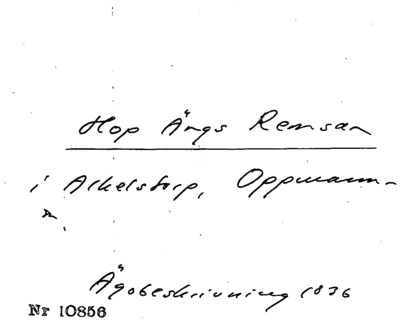 Hop Ängs Remsan
i Arkelstorp, Oppmann-
a.
Ägobeskrivning 1836
Nr 10856